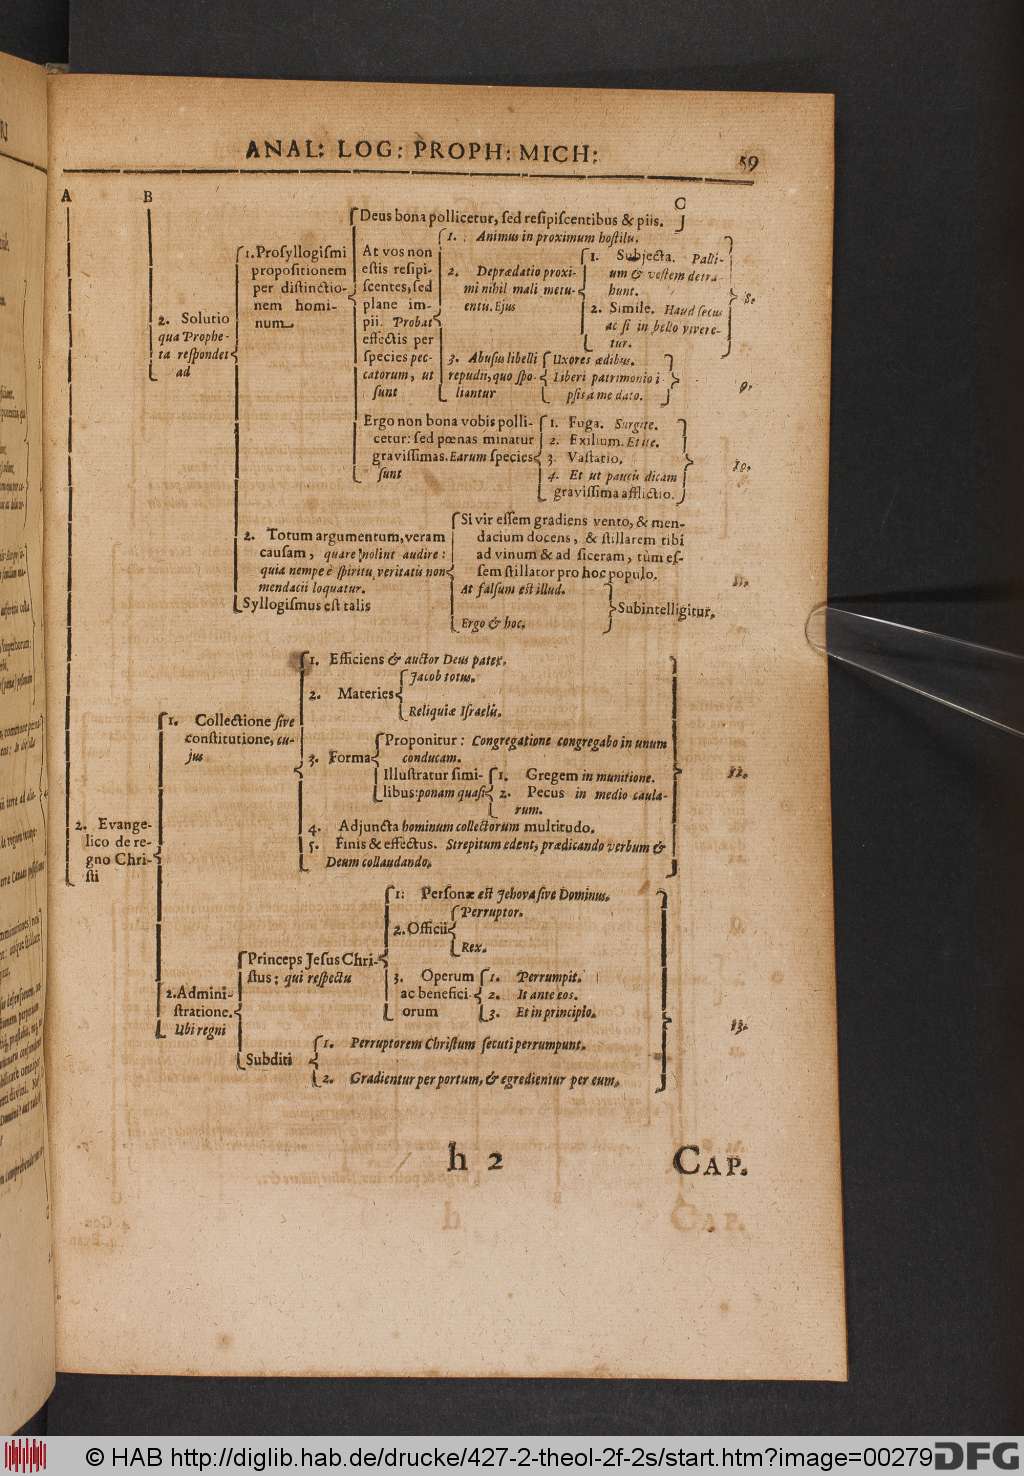 ANAL: LOG: PROPH: MICH:
59
A
B
C
2. Solutio
qua Prophe-
ta respondet
ad
1. Prosyllogismi
propositionem
per distinctio-
nem homi-
num
Deus bona pollicetur, sed resipiscentibus & piis.
At vos non
estis resipi-
scentes, sed
plane im-
pii. Probat
effectis per
species pec-
catorum, ut
sunt
1. Animus in proximum hostilis.
2. Deprædatio proxi-
mi nihil mali metu-
entis. Ejus
1. Subjecta. Palli-
um & vestem detra-
hunt.
2. Simile. Haud secus
ac si in bello vivere-
tur.
8.
3. Abusus libelli
repudii, quo spo-
liantur
Uxores ædibus.
Liberi patrimonio i-
psis a me dato.
9.
Ergo non bona vobis polli-
cetur: sed pœnas minatur
gravissimas. Earum species
sunt
1. Fuga. Surgite.
2. Exilium. Et ite.
3. Vastatio.
4. Et ut paucis dicam
gravissima afflictio.
10.
2. Totum argumentum, veram
causam, quare nolint audire:
quia nempe è spiritu veritatis non
mendacii loquatur.
Syllogismus est talis
Si vir essem gradiens vento, & men-
dacium docens, & stillarem tibi
ad vinum & ad siceram, tùm es-
sem stillator pro hoc populo.
At falsum est illud.
Ergo & hoc.
Subintelligitur.
11.
2. Evange-
lico de re-
gno Chri-
sti
1. Collectione sive
constitutione, cu-
jus
1. Efficiens & auctor Deus pater.
2. Materies
Jacob totus.
Reliquiæ Israelis.
3. Forma
Proponitur: Congregatione congregabo in unum
conducam.
Illustratur simi-
libus: ponam quasi
1. Gregem in munitione.
2. Pecus in medio caula-
rum.
4. Adjuncta hominum collectorum multitudo.
5. Finis & effectus. Strepitum edent, prædicando verbum &
Deum collaudando.
12.
2. Admini-
stratione.
Ubi regni
Princeps Jesus Chri-
stus: qui respectu
1. Personæ est Jehova sive Dominus.
2. Officii
Perruptor.
Rex.
3. Operum
ac benefici-
orum
1. Perrumpit.
2. It ante eos.
3. Et in principio.
Subditi
1. Perruptorem Christum secuti perrumpunt.
2. Gradientur per portum, & egredientur per eum.
13.
h 2
CAP.
© HAB http://diglib.hab.de/drucke/427-2-theol-2f-2s/start.htm?image=00279
DFG